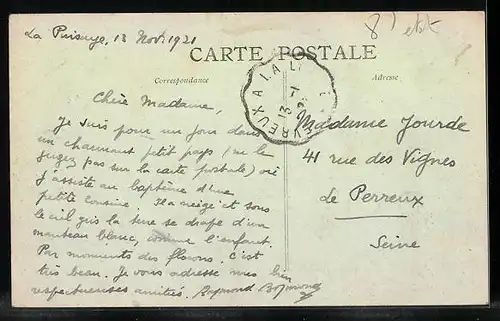 La Puisaye, 13 Nov. 1921
CARTE POSTALE
Correspondance
Adresse
EVREUX A LA L
13 - 1
Chère Madame,
Je suis pour un jour dans
un charmant petit pays (ne le
jugez pas sur la carte postale) où
j'assiste au baptême d'une
petite cousine. Il a neigé et sous
le ciel gris la terre se drape d'un
manteau blanc, comme l'enfant.
Par moments des flocons. C'est
très beau. Je vous adresse mes bien
respectueuses amitiés. Raymond
Madame Jourde
41 rue des Vignes
Le Perreux
Seine